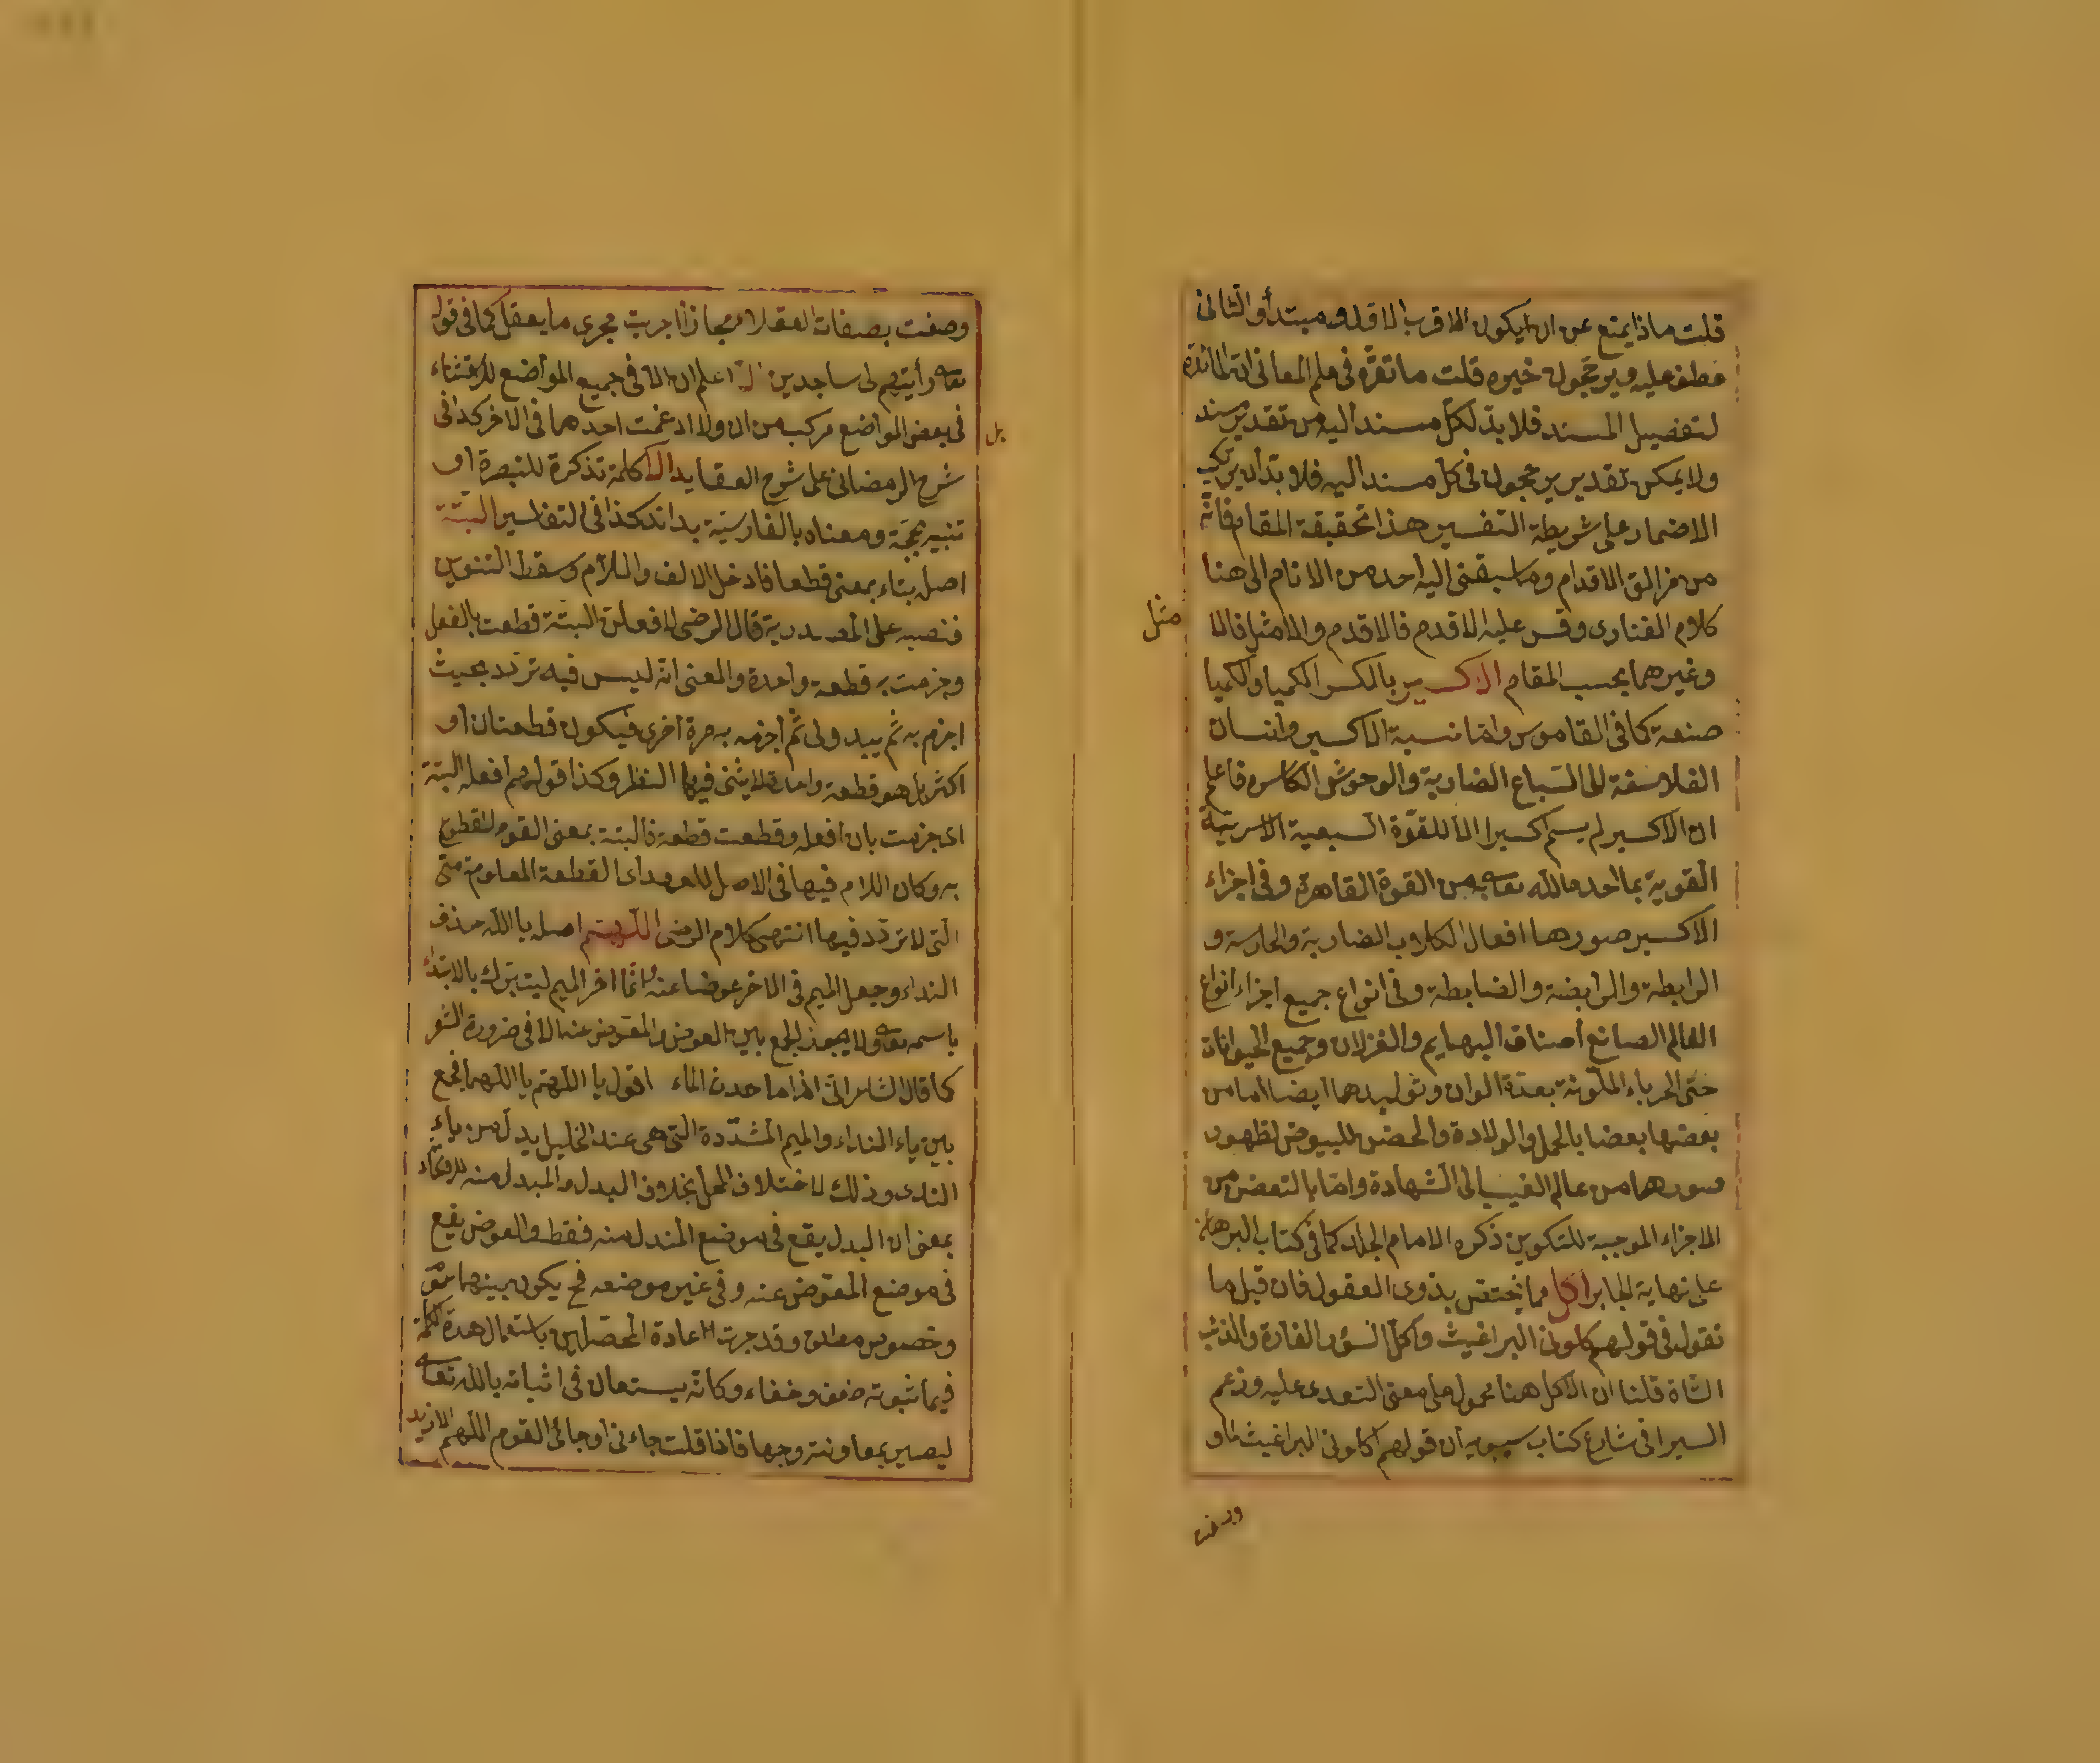 قلت ماذا يمنع عن ان يكون الاقرب الاقل ومبتدأ والثانى
عطف عليه ويرتجحول خبره قلت ما تقرّر فى علم المعانى ان الفائدة
لتفصيل المسند فلا بدّ لكلّ مسند اليه من تقدير مسند
ولا يمكن تقدير يرجحول فى كل مسند اليه فلا بدّ ان يرتكب
الاضمار على شريطة التفسير هذا تحقيقة المقام فانّه
من مزالق الاقدام وما سبقنى اليه احد من الانام الى هنا
كلام الفنارى وقس عليه الاقدم فالاقدم والامثل فالا
مثل
وغيرهما بحسب المقام الاكسير بالكسر الكميا والكميا
صنعة كما فى القاموس وامّا نسبة الاكسير وانسان
الفلاسفة الى السباع الضارية والوحوش الكاسره فاعلم
ان الاكسير لم يسم اكسيرا الا للقوّة السبعية الاسريّة
القوية بما احده الله تعالى به من القوة القاهرة وفى اجزاء
الاكسير صورها افعال الكلاب الضارية والحارسة و
الرابطة والرابضة والضابطة وفى انواع جميع اجزاء انواع
العالم الصانع اصناف البهايم والغزلان وجميع الحيوانات
حتى الحرباء الملوّنة بعدّة الوان وتوليدها ايضا اما من
بعضها بعضا بالحمل والولادة والحضن للبيوض لظهور
صورها من عالم الغيب الى الشهادة وامّا بالتعفن من
الاجزاء الموجبة للتكوين ذكره الامام الجلدكى فى كتاب البرهان
على نهاية الجابر اكل مما يختص بذوى العقول فان قيل ما
تقول فى قولهم اكلونى البراغيث واكل السنور الفارة والذئب
الشاة قلنا ان الاكل هنا محمول على معنى التعدى عليه وزعم
السيرافى شارح كتاب سيبويه ان قولهم اكلونى البراغيث ناو
وصفت
وصفت بصفات العقلاء مجازا اجريت مجرى ما يعقل كما فى قوله
تعالى رأيتهم لى ساجدين الا اعلم ان الا فى جميع المواضع للاستثناء
بل
فى بعض المواضع مركب من ان ولا ادغمت احدهما فى الاخر كذا فى
شرح الرمضانى على شرح العقايد الا كلمة تذكرة للتبصرة او
تنبيه بحجّة ومعناه بالفارسيّة بدانند كذا فى التفاسير البتّة
اصله بتاء بمعنى قطعا فادخل الالف واللام وسقط التنوين
فنصبه على المصدرية قال الرضى لا افعلن البتة قطعت بالفعل
وجزمت به قطعة واحدة والمعنى انه ليس فيه تردّد بحيث
اجزم به ثم يبدو لى ثم اجزم به مرة اخرى فيكون قطعتان او
اكثر بل هو قطعة واحدة لا يثنى فيها النظر وكذا قولهم افعله البتة
اى جزمت بان افعله وقطعت قطعة فالبتة بمعنى القول المقطوع
به وكان اللام فيها فى الاصل للعهد اى القطعة المعلومة منى
التى لا تردّد فيها انتهى كلام الرضى اللّهمّ اصله يا الله حذف
النداء وجعل الميم فى الاخر عوضا عنه وانّما اخر الميم ليتبرك بالابتداء
باسمه تعالى ولا يجوز الجمع بين العوض والمعوّض عنه الا فى ضرورة الشعر
كما قال الشاعر انّى اذا ما حدث الماء اقول يا اللّهم يا اللّهما فجمع
بين ياء النداء والميم المشدّدة التى هى عند الخليل بدل من ياء
النداء وذلك لاختلاف المحل بخلاف البدل والمبدل منه
بمعنى ان البدل يقع فى موضع المبدل منه فقط والعوض يقع
فى موضع المعوّض عنه وفى غير موضعه فح يكون بينهما عموم
وخصوص مطلق وقد جرت عادة المحصّلين باستعمال هذه الكلمة
فيما ثبوته ضعف وخفاء وكانّه يستعان فى اثباته بالله تعالى
ليصير بمعاونته وجها فاذا قلت جاءنى او جائى القوم اللّهم الا زيد